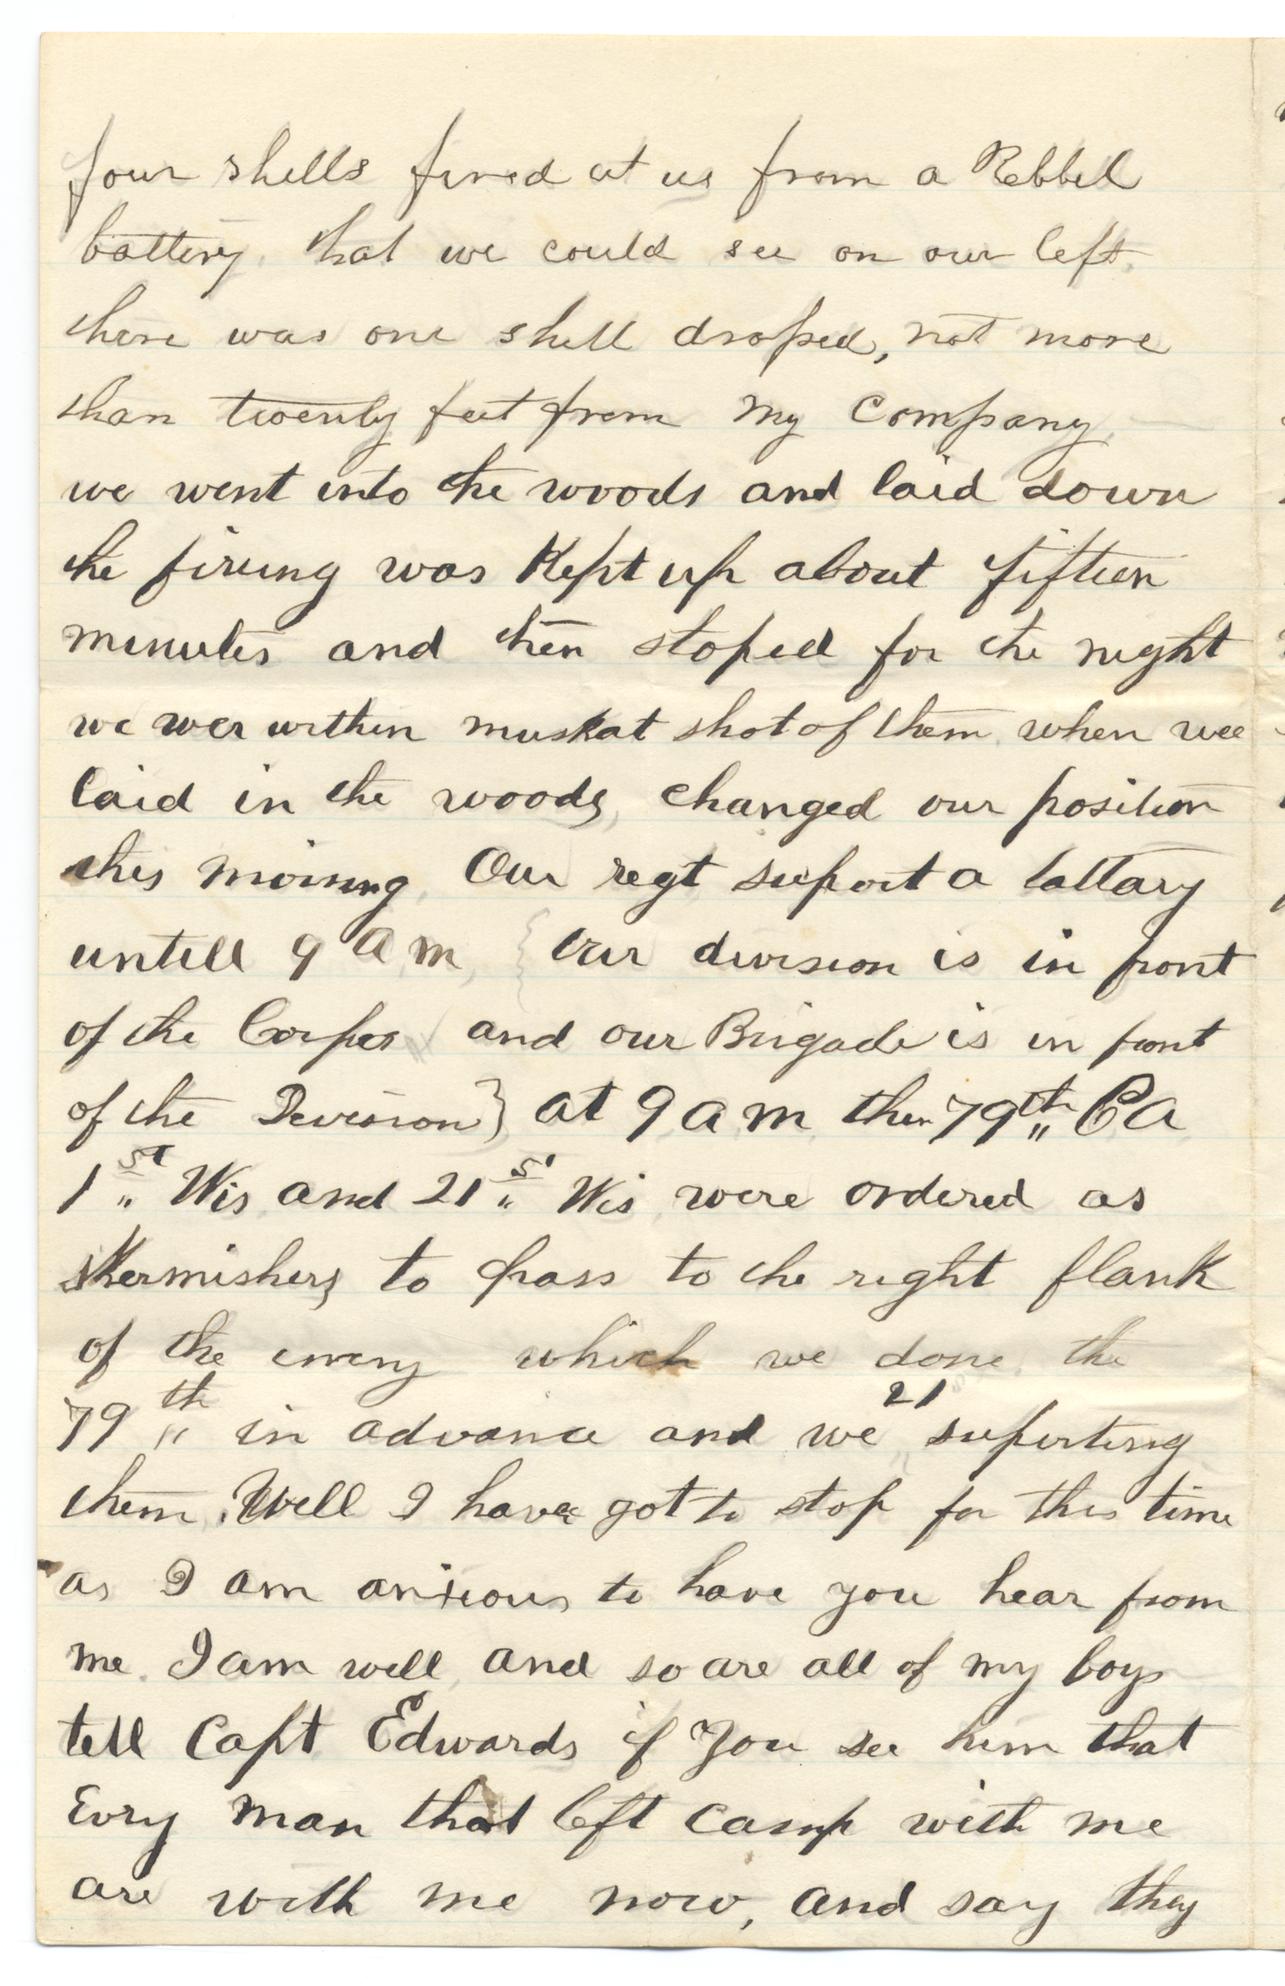 four shells fired at us from a Rebbel
battery, that we could see on our left.
there was one shell droped, not more
than twenty feet from my Company,
we went into the woods and laid down
the firing was Kept up about fifteen
minutes and then stoped for the night
we wer within muskat shot of them when wee
laid in the woods, changed our position
this morning, Our regt suport a battary
untill 9 a m, { Our division is in front
of the Corpes and our Brigade is in front
of the Devision } at 9 a m the 79th Pa
1st Wis and 21st Wis were ordered as
skermishers to pass to the right flank
of the enemy which we done, the
79th in advance and we 21 suporting
them. Well I have got to stop for this time
as I am anxious to have you hear from
me. I am well, and so are all of my boys
tell Capt Edwards if You see him that
Evry man that left camp with me
are with me now, and say they